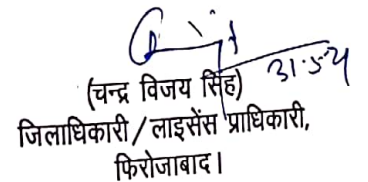 31.5.21
(चन्द्र विजय सिंह)
जिलाधिकारी / लाइसेंस प्राधिकारी,
फिरोजाबाद।